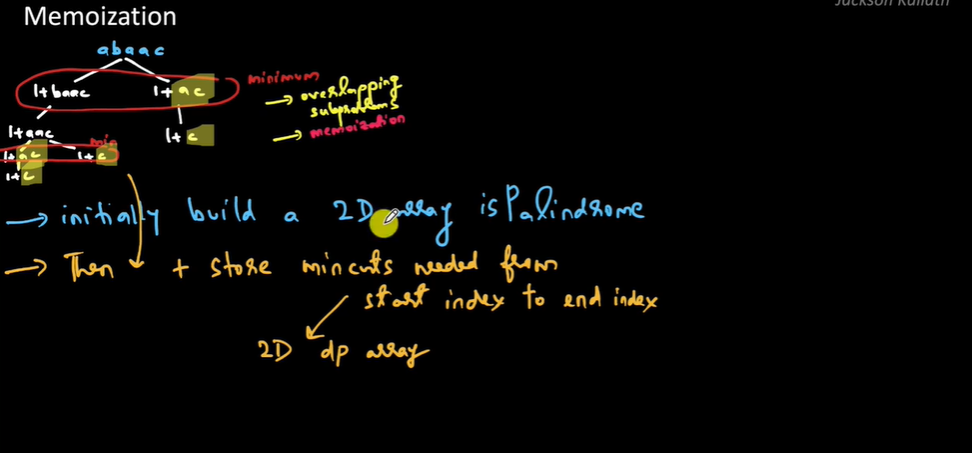 Jackson Kailath
Memoization
abaac
1+baac 1+ac minimum
→ overlapping
subproblems
1+aac 1+c → memoization
min
1+ac 1+c
1+c
→ initially build a 2D array isPalindrome
→ Then + store mincuts needed from
start index to end index
2D dp array